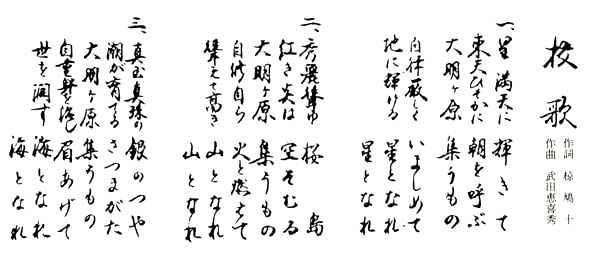 校歌
作詞 椋 鳩 十
作曲 武田恵喜秀
一、星 満天に 輝きて
東天ひそかに 朝を呼ぶ
大明ヶ原 集うもの
自律厳しく いましめて
地に輝ける 星となれ
星となれ
二、秀麗 桜島
紅き炎は 空そむる
大明ヶ原 集うもの
自修自ら 火と燃えて
聳えて高き 山となれ
山となれ
三、真玉真珠の 銀のつや
潮が育てる さつまがた
大明ヶ原 集うもの
自重 眉あげて
世を潤す 海となれ
海となれ